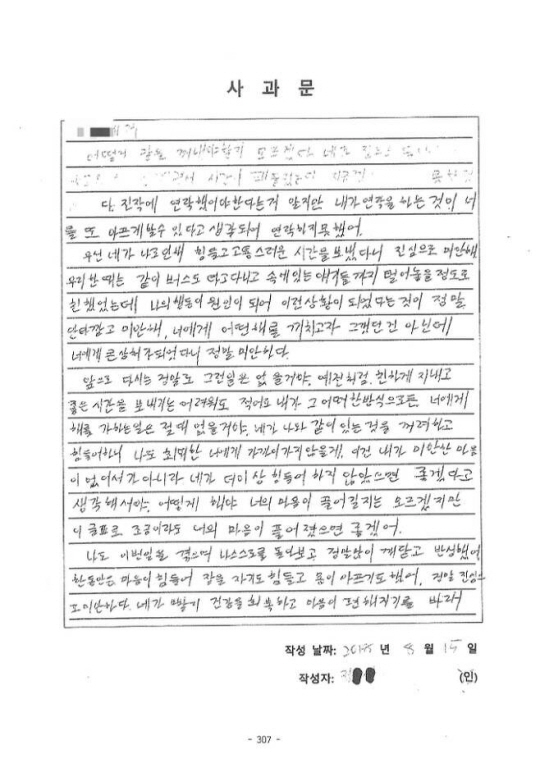 사 과 문
어떻게 말을 꺼내야할지 모르겠다
더 진작에 연락했어야한다는걸 알지만 내가 연락을 하는 것이 너
를 또 아프게할수 있다고 생각되어 연락하지못했어.
우선 네가 나로인해 힘들고고통스러운 시간을 보냈다니 진심으로 미안해
우리한때는 같이 버스도 타고다니고 속에있는 얘기들까지 털어놓을 정도로
친했었는데 나의행동이 원인이 되어 이런상황이 되었다는것이 정말
안타깝고 미안해, 너에게 어떤해를 끼치고자 그랬던건 아닌데
너에게 큰상처가되었다니 정말 미안하다.
앞으로 다시는 정말로 그런일은 없을거야. 예전처럼 친하게 지내고
좋은 시간을 보내기는 어려워도 적어도 내가 그 어떠한방식으로든 너에게
해를 가하는일은 절대 없을거야. 네가 나와 같이있는 것을 꺼려하고
힘들어하니 나도 최대한 너에게 가까이가지않을게. 이건 내가 미안한 마음
이 없어서가아니라 네가 더이상 힘들어 하지 않았으면 좋겠다고
생각해서야. 어떻게 해야 너의 마음이 풀어질지는 모르겠지만
이 글로 조금이라도 너의 마음이 풀어졌으면 좋겠어.
나도 이번일을 겪으며 나스스로를 돌아보고 정말많이 깨닫고 반성했어
한동안은 마음이 힘들어 잠을 자기도 힘들고 몸이 아프기도했어. 정말 진심으
로미안하다. 네가 건강을 회복하고 마음이 편해지기를 바래
작성 날짜: 년 8 월 15 일
작성자: (인)
- 307 -